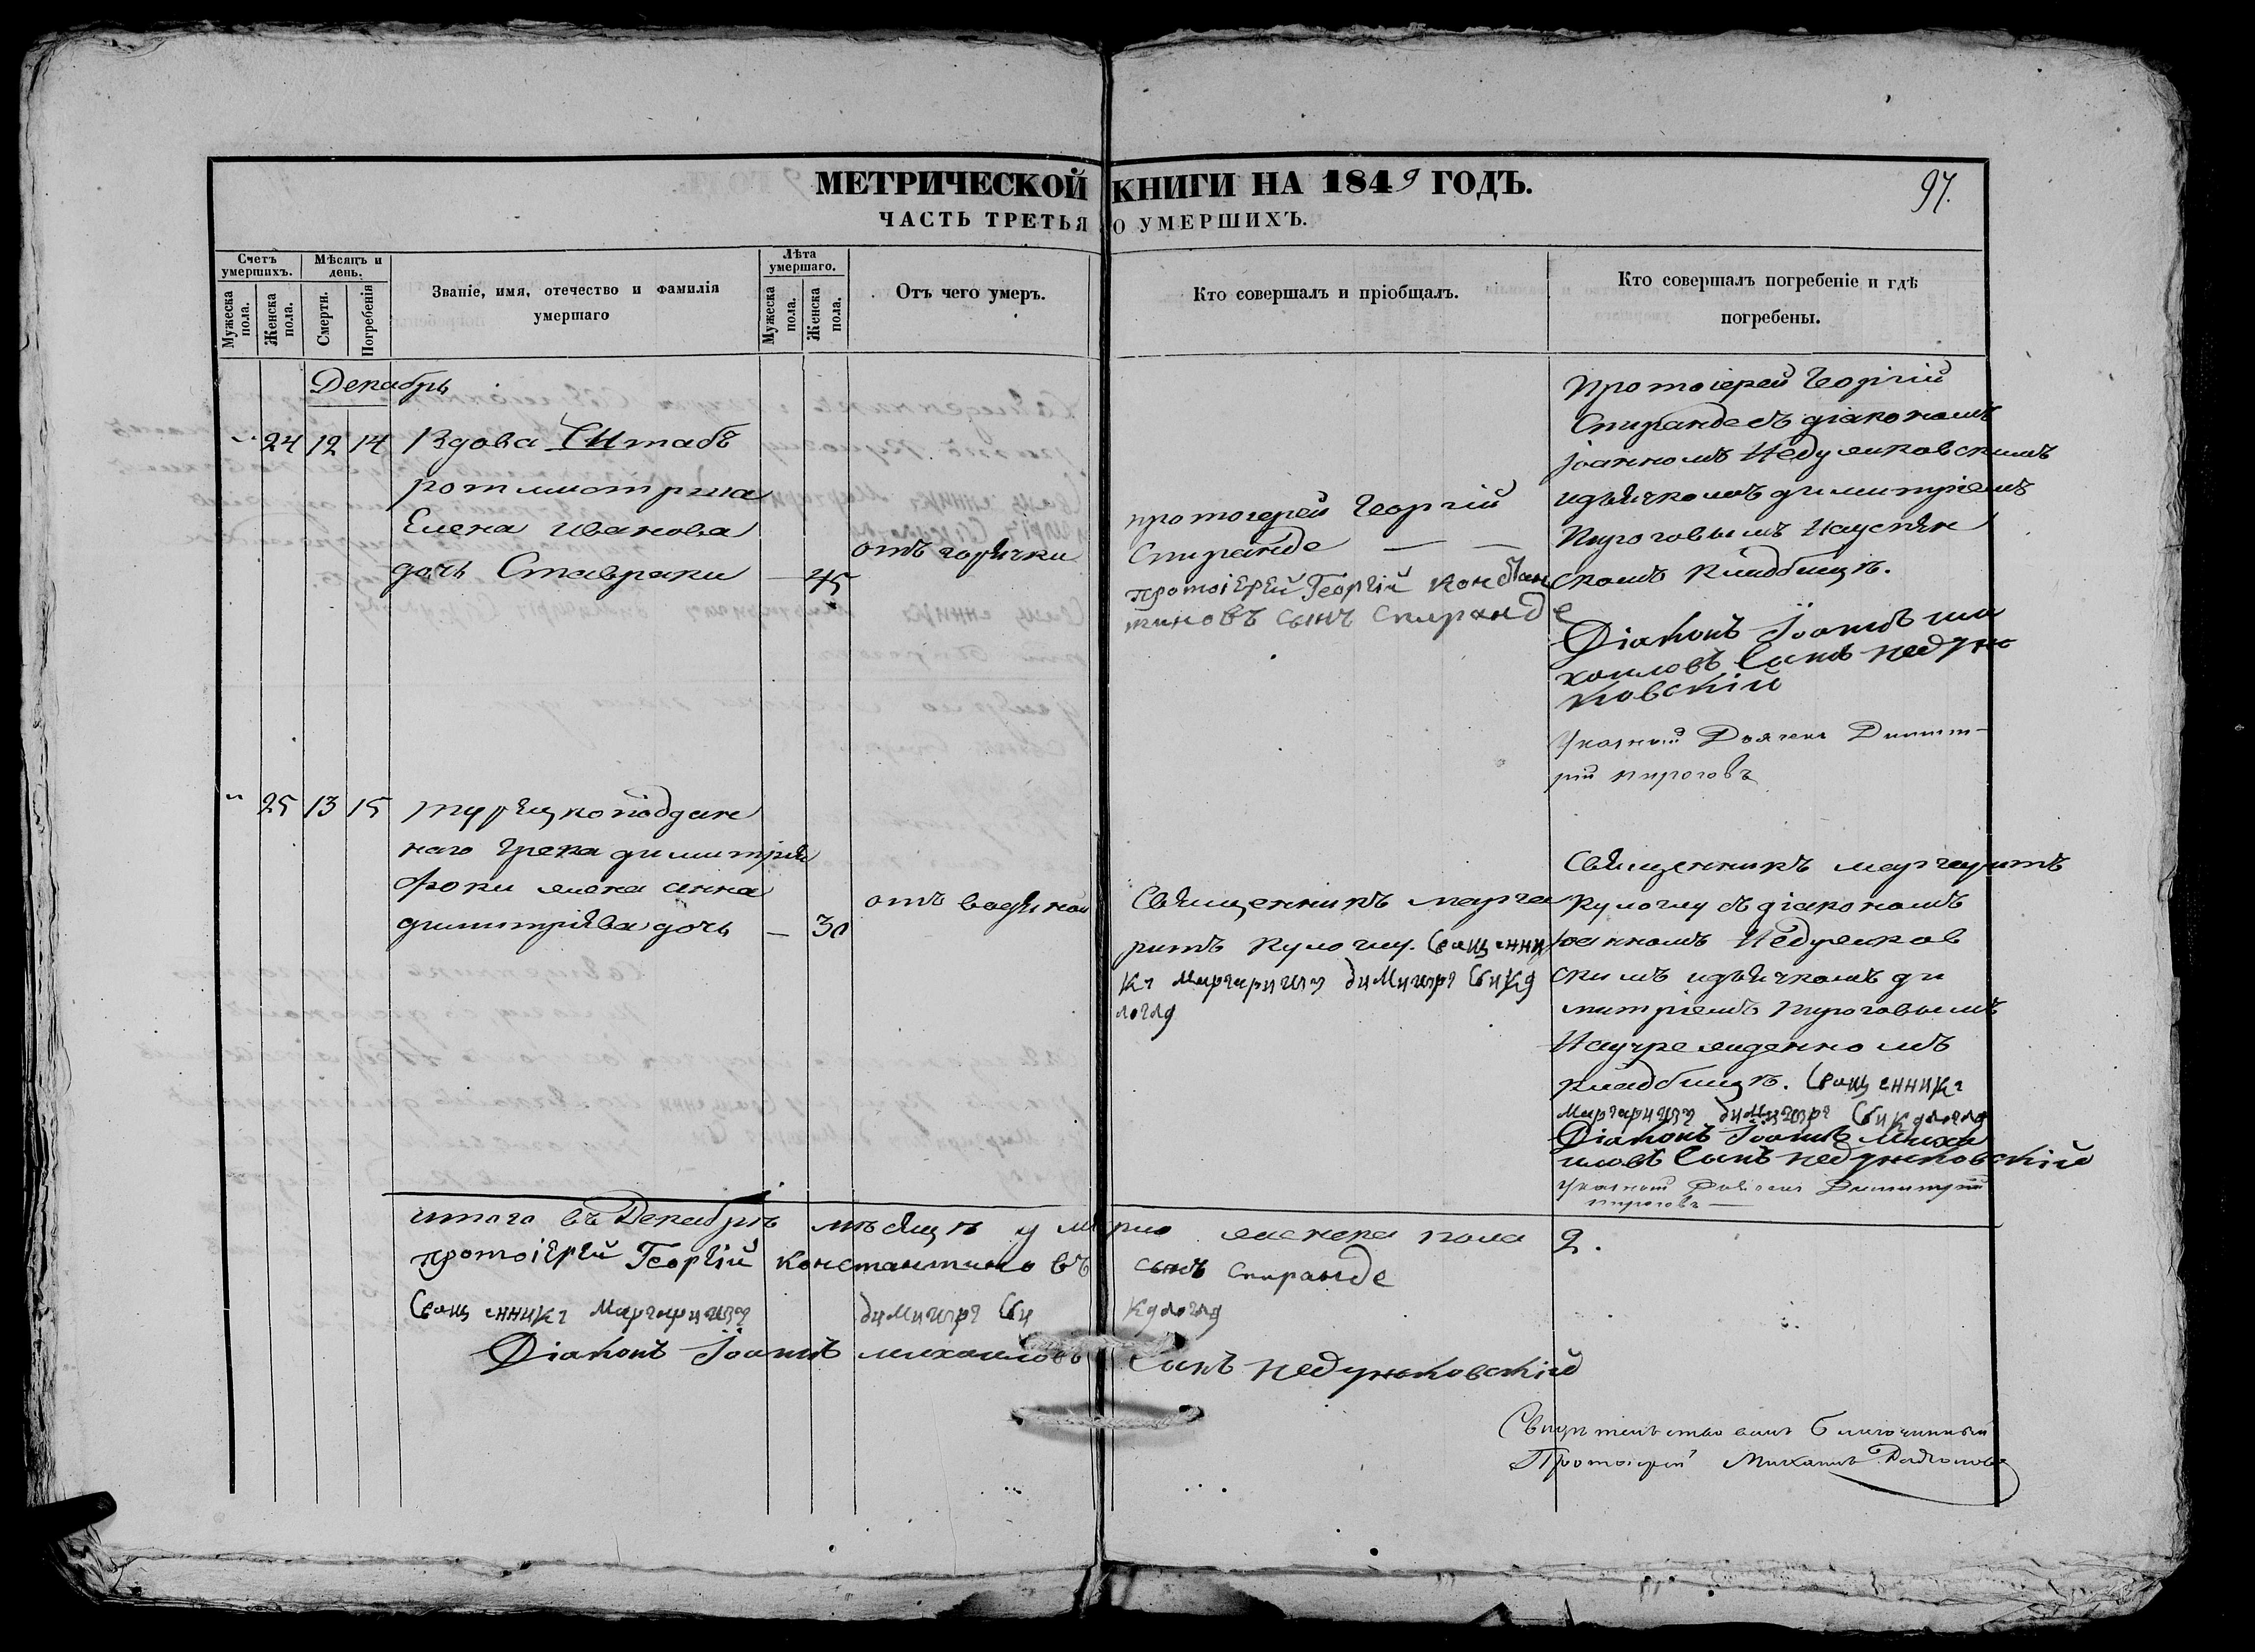 МЕТРИЧЕСКОЙ КНИГИ НА 1849 ГОДЪ.
97.
ЧАСТЬ ТРЕТЬЯ О УМЕРШИХЪ.
Счетъ умершихъ.
Мужеска пола.
Женска пола.
Мѣсяцъ и день.
Смерти.
Погребенія
Званіе, имя, отечество и фамилія
умершаго
Лѣта умершаго.
Мужеска пола.
Женска пола.
Отъ чего умеръ.
Кто совершалъ и пріобщалъ.
Кто совершалъ погребеніе и гдѣ
погребены.
Декабрь
„ 24 12 14 Вдова Штабъ
ротмистрша
Елена Иванова
дочь Ставраки — 45
отъ горячки
протоіерей Георгій
Спиранде — —
протоіерей Георгій Констан
тиновъ сынъ Спиранде
Протоіерей Георгій
Спиранде съ діакономъ
Іоанномъ Недумковскимъ
идьячкомъ димитріемъ
Пироговымъ Науспен
скомъ кладбищѣ.
Діаконъ Іоаннъ ми
хаиловъ Сынъ недум
ковскій
Указный Дьячекъ Димит-
рій пироговъ
„ 25 13 15 турецкоподдан
наго Грека димитрія
Фоки жена анна
димитріева дочь — 30
отъ водяной
Священникъ марга
ритъ Кулоглу. Священни
къ Маргаритъ
логлу
Священникъ маргаритъ
Кулоглу съ діакономъ
Іоанномъ Недумков
скимъ идьячкомъ ди
митріемъ пироговымъ
Научрежденномъ
кладбищѣ. Священникъ
Маргаритъ
Діаконъ Іоаннъ Миха
иловъ Сынъ недумковскій
Указный Димитрій
пироговъ —
итого въ Декабрѣ мѣсяцѣ умерло женска пола 2.
протоіерей Георгій Константиновъ сынъ Спиранде
Священникъ Маргаритъ Кулоглу
Діаконъ Іоаннъ михаиловъ Сынъ недумковскій
Свидѣтельствовалъ Благочинный
Протоіерей Михаилъ